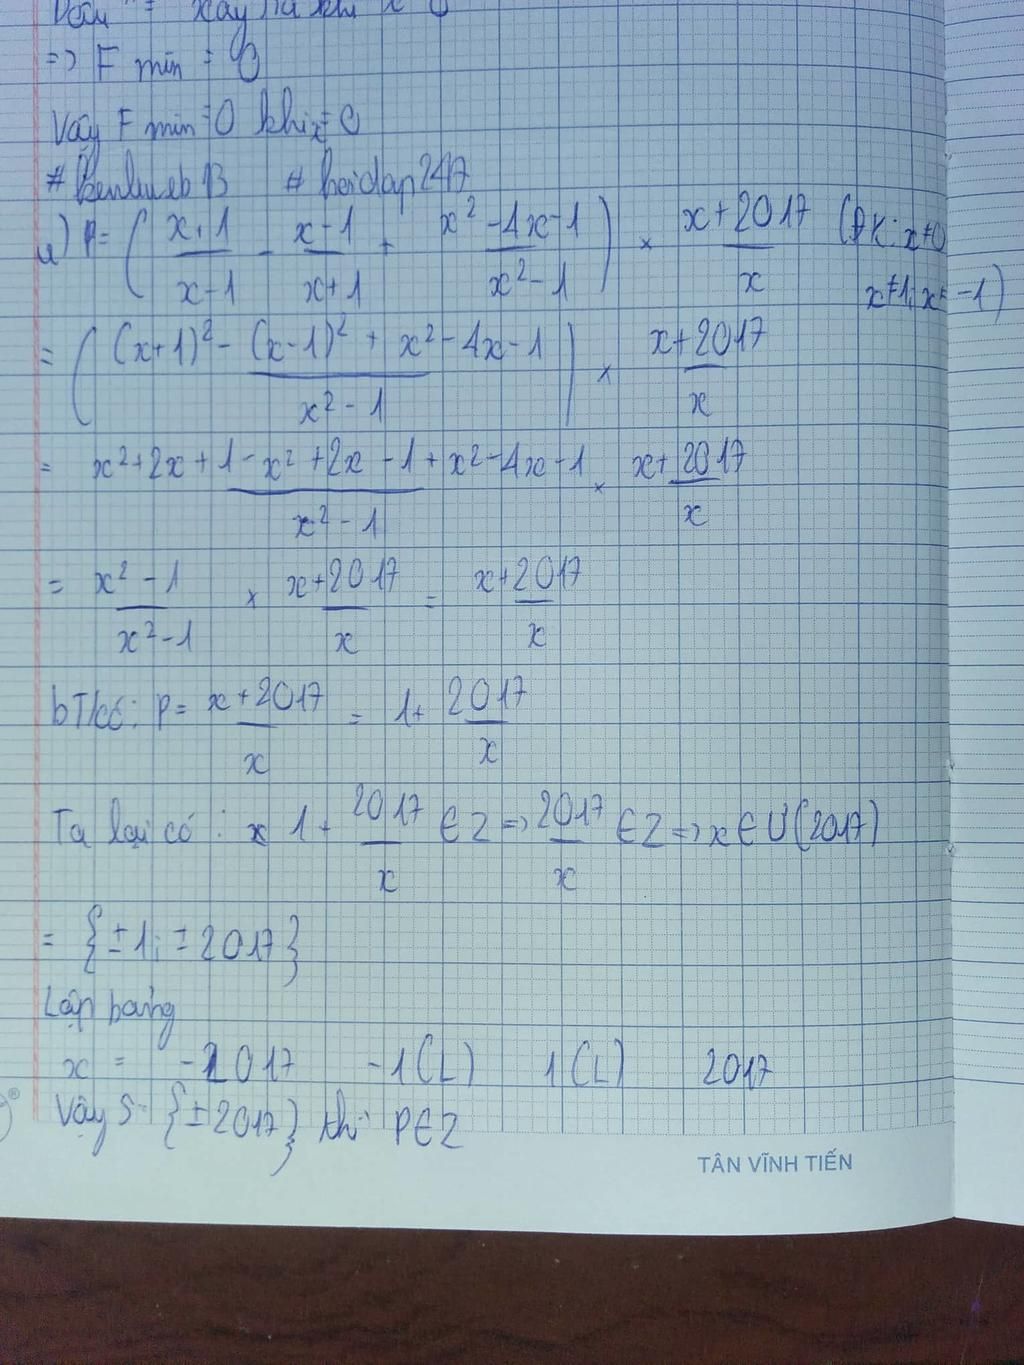 Dấu "=" xảy ra khi x = 0
=> F min = 0
Vậy F min = 0 khi x = 0
# hoidap247
a) P = ( (x+1)/(x-1) - (x-1)/(x+1) + (x² - 4x - 1)/(x² - 1) ) × (x+2017)/x (ĐK: x≠0
x≠1; x≠-1)
= ( ((x+1)² - (x-1)² + x² - 4x - 1)/(x² - 1) ) × (x+2017)/x
= (x² + 2x + 1 - x² + 2x - 1 + x² - 4x - 1)/(x² - 1) × (x+2017)/x
= (x² - 1)/(x² - 1) × (x+2017)/x = (x+2017)/x
b) T/có: P = (x+2017)/x = 1 + 2017/x
Ta lại có: 1 + 2017/x ∈ Z => 2017/x ∈ Z => x ∈ Ư(2017)
= {±1; ±2017}
Lập bảng
x = -2017 -1(L) 1(L) 2017
Vậy S = {±2017} thì P ∈ Z
TÂN VĨNH TIẾN